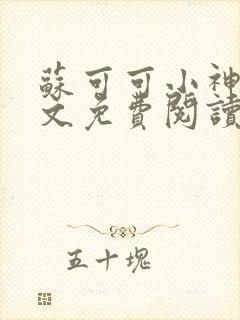 蘇可可小神
文免費閱讀
五十塊